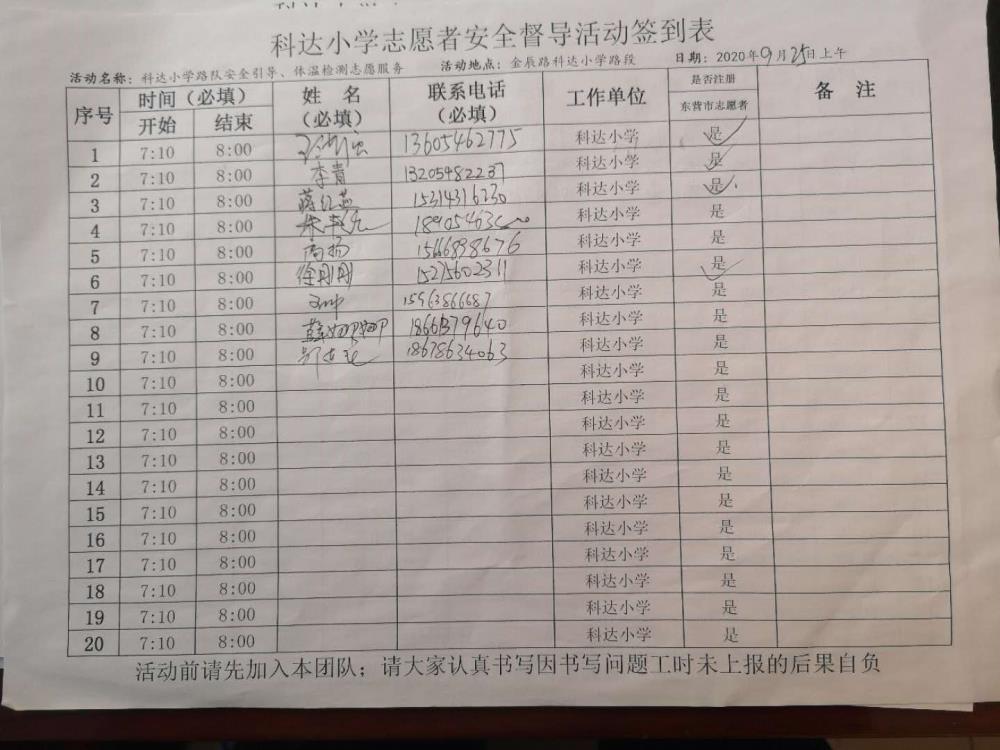 科达小学志愿者安全督导活动签到表
活动名称：科达小学路队安全引导、体温检测志愿服务 活动地点：金辰路科达小学路段 日期：2020年9月25日上午
序号 时间（必填） 姓 名（必填） 联系电话（必填） 工作单位 是否注册 备 注
开始 结束 东营市志愿者
1 7:10 8:00 13605462775 科达小学 是
2 7:10 8:00 李青 13205482237 科达小学 是
3 7:10 8:00 蒋红燕 15314316230 科达小学 是
4 7:10 8:00 科达小学 是
5 7:10 8:00 高扬 15666898676 科达小学 是
6 7:10 8:00 徐刚刚 15275602311 科达小学 是
7 7:10 8:00 15963866687 科达小学 是
8 7:10 8:00 科达小学 是
9 7:10 8:00 18678634063 科达小学 是
10 7:10 8:00 科达小学 是
11 7:10 8:00 科达小学 是
12 7:10 8:00 科达小学 是
13 7:10 8:00 科达小学 是
14 7:10 8:00 科达小学 是
15 7:10 8:00 科达小学 是
16 7:10 8:00 科达小学 是
17 7:10 8:00 科达小学 是
18 7:10 8:00 科达小学 是
19 7:10 8:00 科达小学 是
20 7:10 8:00 科达小学 是
活动前请先加入本团队；请大家认真书写因书写问题工时未上报的后果自负